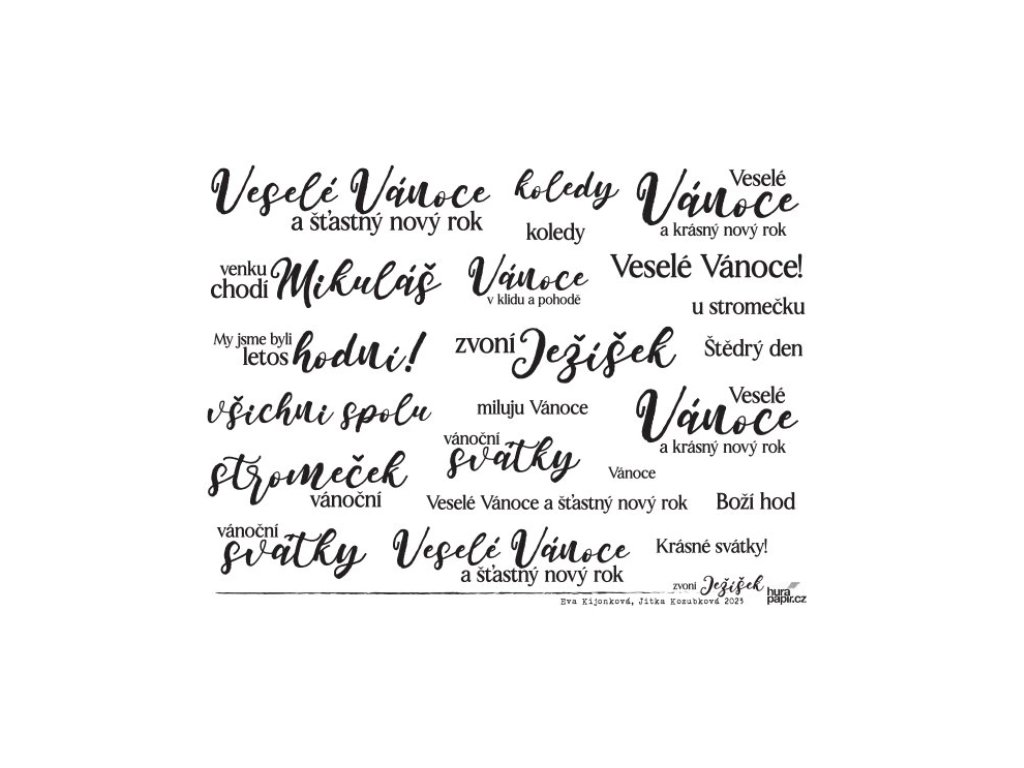 Veselé Vánoce
a šťastný nový rok
koledy
koledy
Veselé
Vánoce
a krásný nový rok
venku
chodí Mikuláš
Vánoce
v klidu a pohodě
Veselé Vánoce!
u stromečku
My jsme byli
letos hodní!
zvoní Ježíšek
Štědrý den
všichni spolu
miluju Vánoce
Veselé
Vánoce
a krásný nový rok
stromeček
vánoční
vánoční
svátky
Vánoce
Veselé Vánoce a šťastný nový rok
Boží hod
vánoční
svátky
Veselé Vánoce
a šťastný nový rok
Krásné svátky!
zvoní Ježíšek
Eva Kijonková, Jitka Kozubková 2025
hura
papir.cz